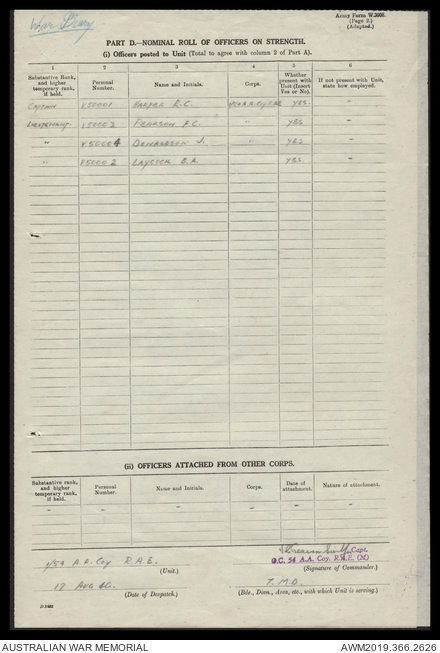 War Diary
Army Form W.3008.
(Page 2.)
(Adapted.)
PART D.—NOMINAL ROLL OF OFFICERS ON STRENGTH.
(i) Officers posted to Unit (Total to agree with column 2 of Part A).
1 2 3 4 5 6
Substantive Rank, and higher temporary rank, if held. Personal Number. Name and Initials. Corps. Whether present with Unit (Insert Yes or No). If not present with Unit, state how employed.
Captain V50001 Harper R.C. YES. -
Lieutenant V50003 Pearson F.C. " YES -
" V50004 Donaldson J. " YES -
V50002 Laycock B.A. YES -
(ii) OFFICERS ATTACHED FROM OTHER CORPS.
Substantive rank, and higher temporary rank, if held. Personal Number. Name and Initials. Corps. Date of attachment. Nature of attachment.
- - - - - -
Capt.
O.C. 54 A.A. Coy. R.A.E. (M)
54 A.A. Coy R.A.E.
(Unit.)
(Signature of Commander.)
19 Aug
T.M.D.
(Date of Despatch.)
(Bde., Divn., Area, etc., with which Unit is serving.)
AUSTRALIAN WAR MEMORIAL
AWM2019.366.2626